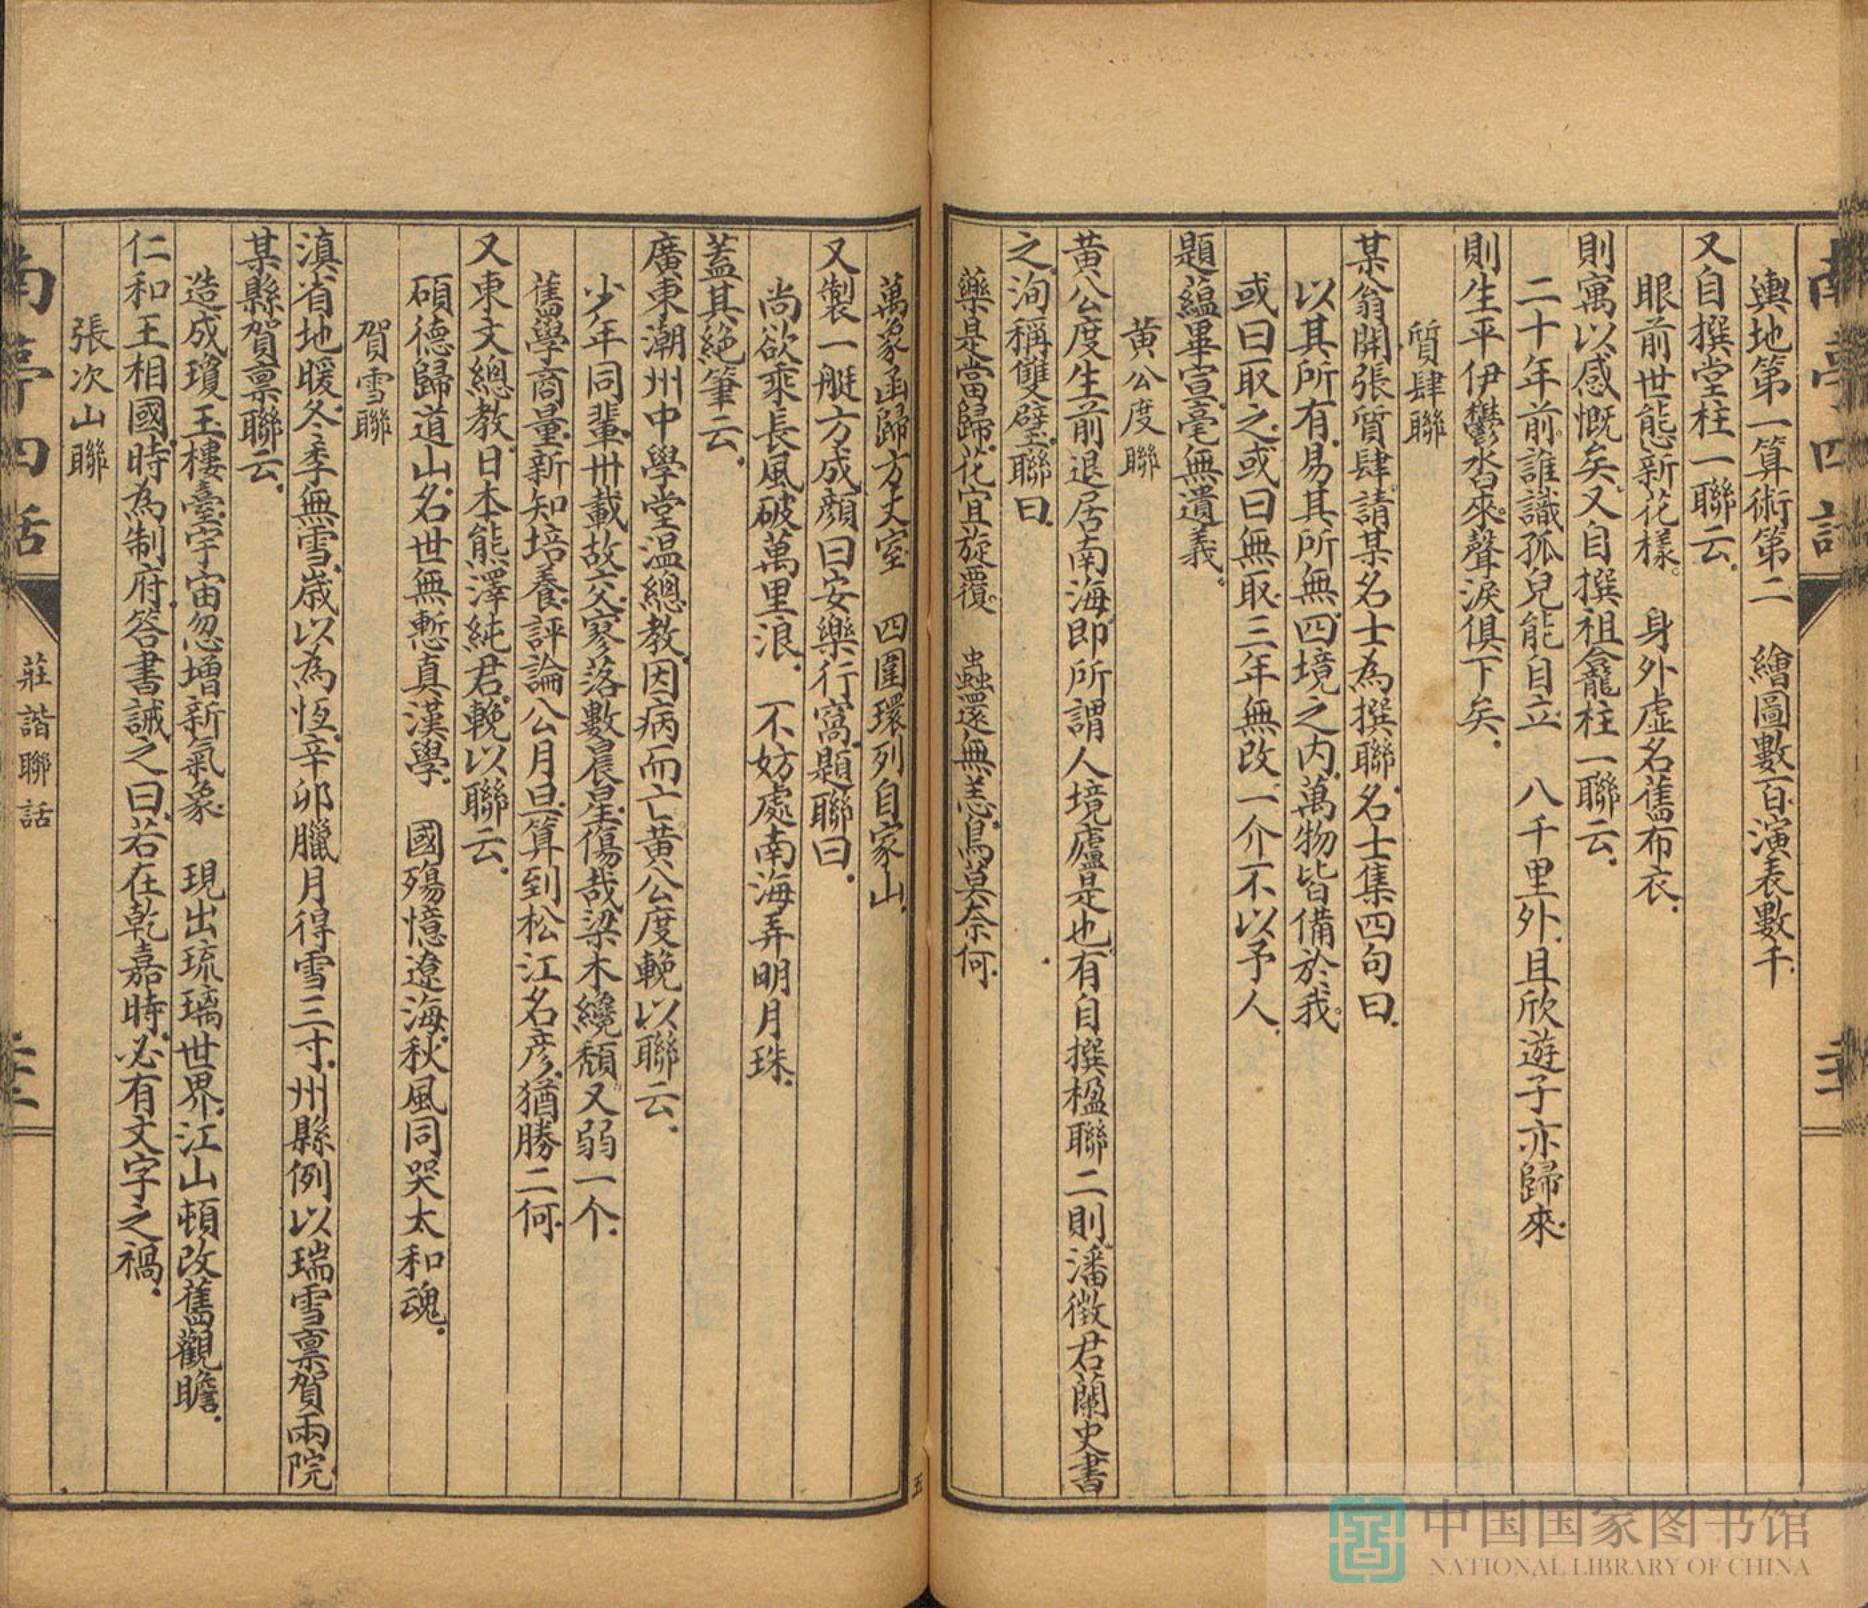 南亭四話
輿地第一算術第二　繪圖數百演表數千.
又自撰堂柱一聯云.
眼前世態新花樣。　身外虛名舊布衣.
則寓以感慨矣.又自撰祖龕柱一聯云.
二十年前.誰識孤兒能自立　八千里外.且欣遊子亦歸來.
則生平伊鬱沓來.聲淚俱下矣.
質肆聯
某翁開張質肆.請某名士為撰聯.名士集四句曰.
以其所有.易其所無.四境之內.萬物皆備於我.
或曰取之.或曰無取.三年無改.一介不以予人.
題蘊畢宣.毫無遺義。
黃公度聯
黃公度生前退居南海.即所謂人境廬是也.有自撰楹聯二則.潘徵君蘭史書
之.洵稱雙璧.聯曰.
藥是當歸.花宜旋覆。　蟲還無恙.鳥莫奈何.
萬象函歸方丈室　四圍環列自家山.
又製一艇方成.顏曰安樂行窩.題聯曰.
尚欲乘長風破萬里浪.　不妨處南海弄明月珠.
蓋其絕筆云.
廣東潮州中學堂溫總教.因病而亡.黃公度輓以聯云.
少年同輩.卅載故交.寥落數晨星.傷哉梁木纔頹.又弱一个.
舊學商量.新知培養.評論公月旦.算到松江名彥.猶勝二何.
又東文總教.日本熊澤純君.輓以聯云.
碩德歸道山.名世無慙真漢學.　國殤憶遼海.秋風同哭太和魂.
賀雪聯
滇省地暖.冬季無雪.歲以為恆.辛卯臘月得雪三寸.州縣例以瑞雪稟賀兩院.
某縣賀稟聯云.
造成瓊玉樓臺.宇宙忽增新氣象.　現出琉璃世界.江山頓改舊觀瞻.
仁和王相國.時為制府.答書誡之曰.若在乾嘉時.必有文字之禍.
張次山聯
南亭四話
莊諧聯話
五
中国国家图书馆
NATIONAL LIBRARY OF CHINA